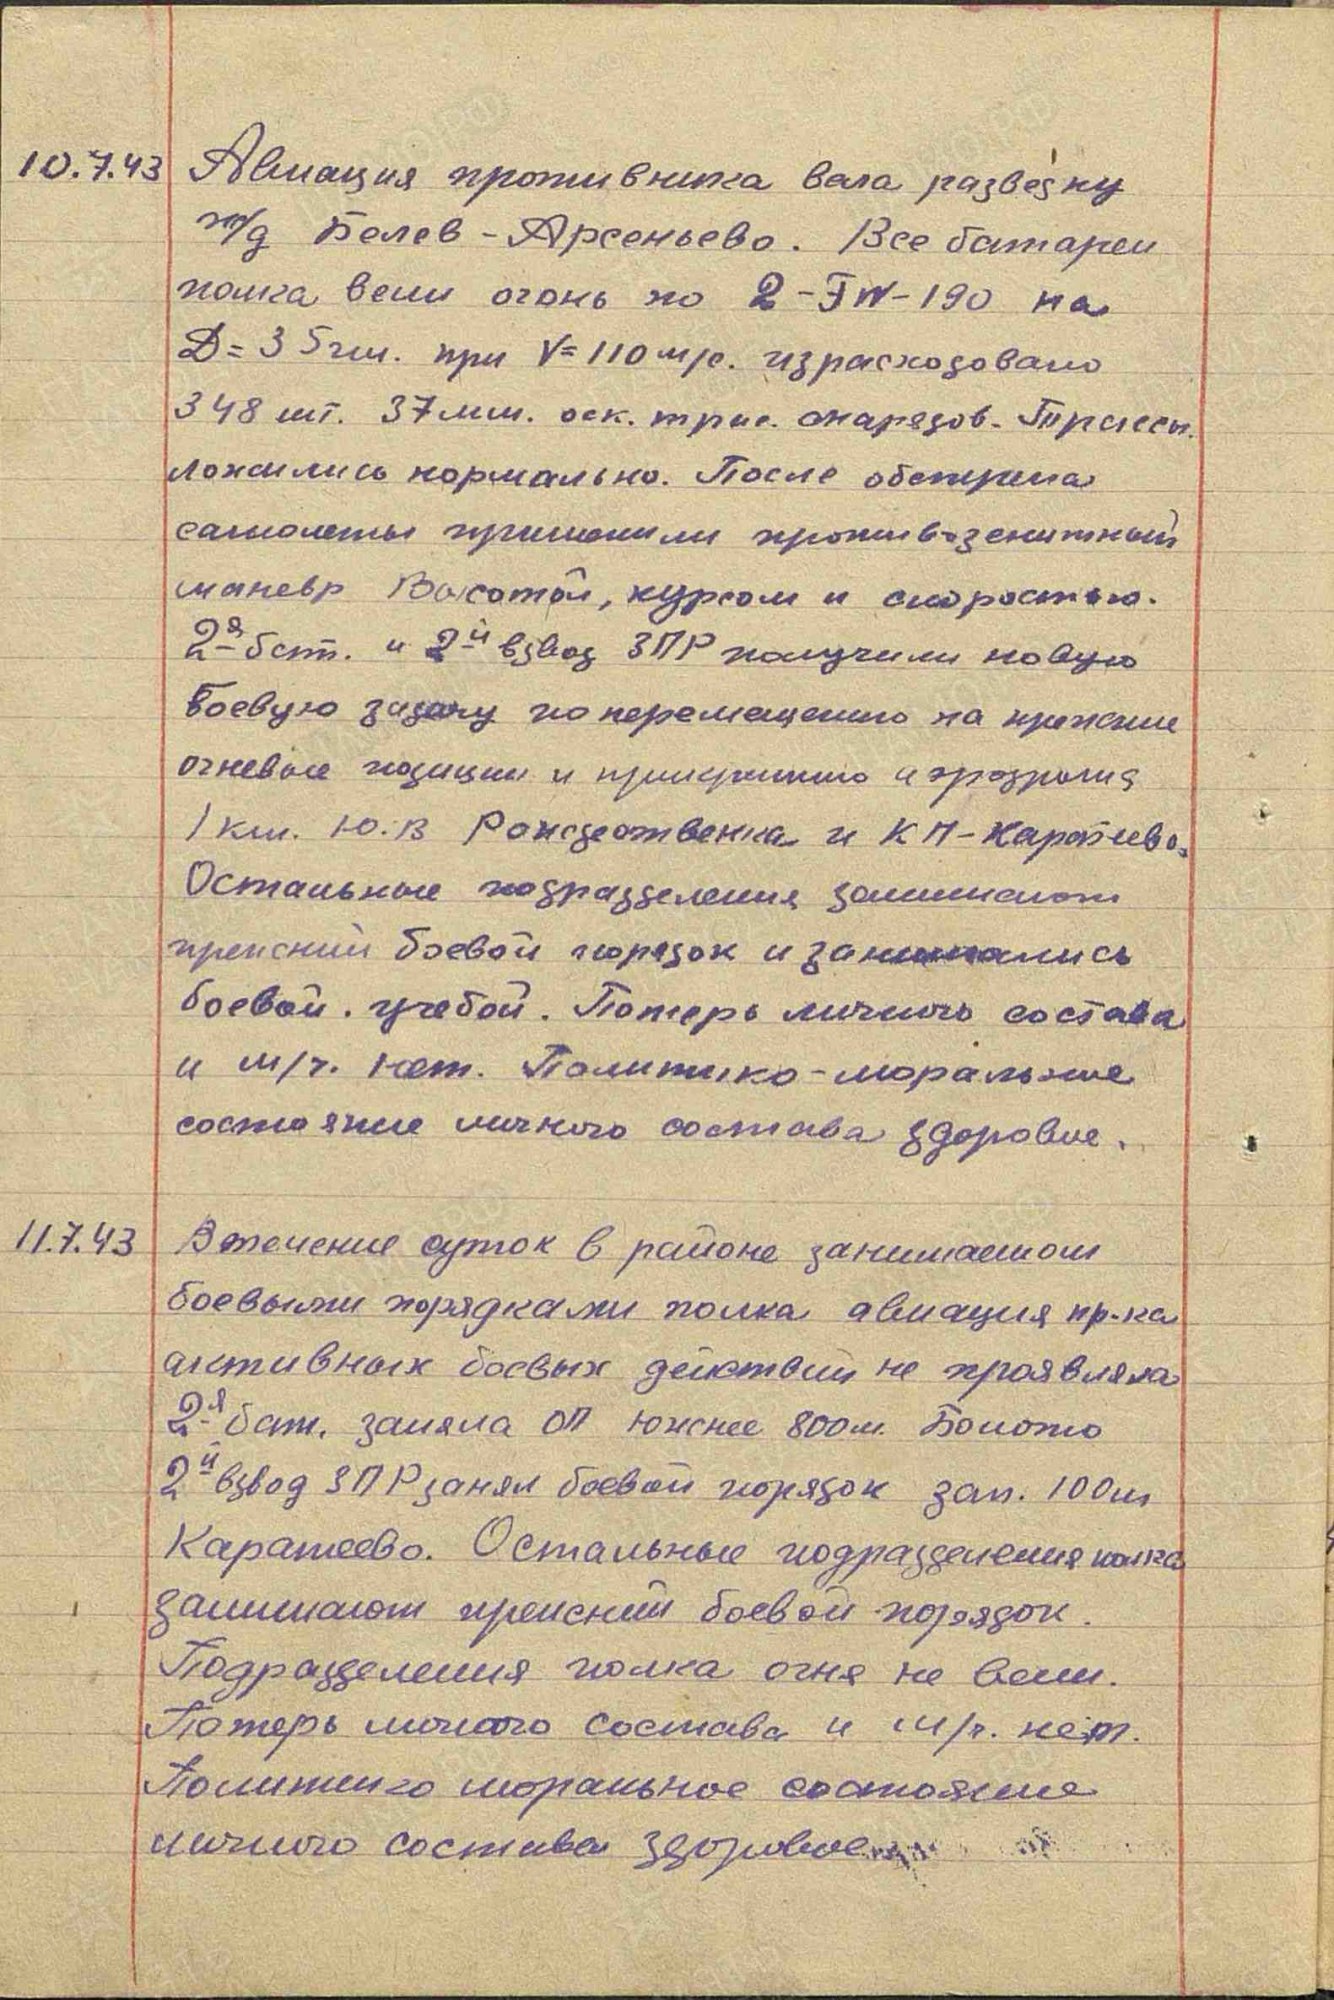 10.7.43 Авиация противника вела разведку
ж/д Белев - Арсеньево. Все батареи
полка вели огонь по 2-FW-190 на
Д=35гм. при V=110 м/с. израсходовано
348 шт. 37мм. оск. трас. снарядов. Трассы
ложились нормально. После обстрела
самолеты применили противозенитный
маневр Высотой, курсом и скоростью.
2-я бат. и 2-й взвод ЗПР получили новую
боевую задачу по перемещению на прежние
огневые позиции и прикрытию аэродрома
1 км. Ю.В Рождественка и КП-Каратеево.
Остальные подразделения занимают
прежний боевой порядок и занимались
боевой. учебой. Потерь личного состава
и м/ч. нет. Политико-моральное
состояние личного состава здоровое.
11.7.43 В течение суток в районе занимаемом
боевыми порядками полка авиация пр-ка
активных боевых действий не проявляла
2-я бат. заняла ОП южнее 800м. Болото
2-й взвод ЗПР занял боевой порядок зап. 100м
Каратеево. Остальные подразделения полка
занимают прежний боевой порядок.
Подразделения полка огня не вели.
Потерь личного состава и м/ч. нет.
Политико моральное состояние
личного состава здоровое